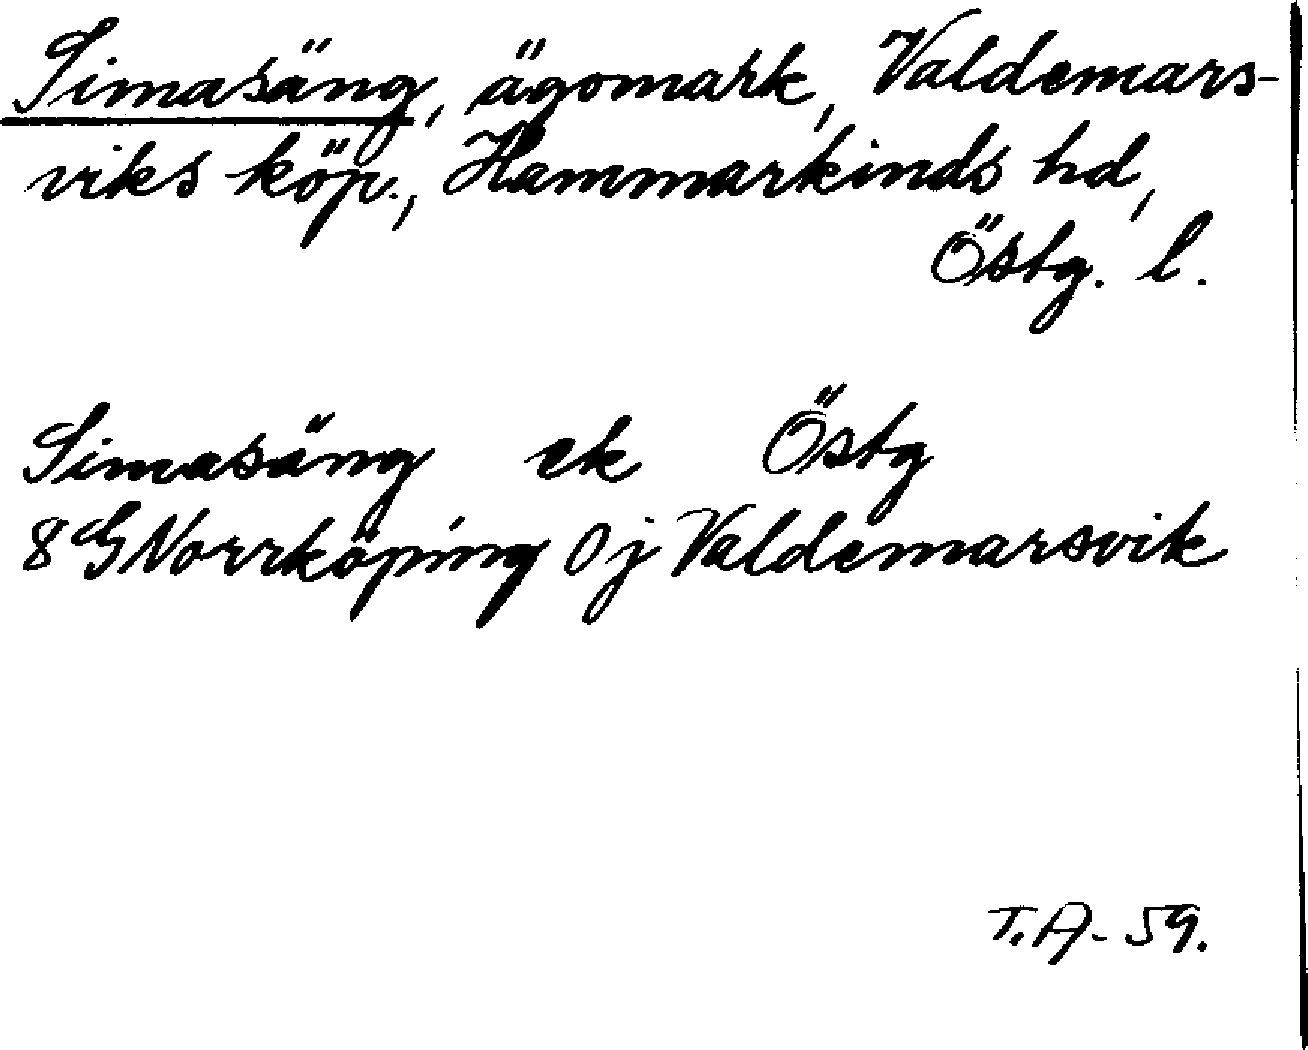 Simasäng, ägomark, Valdemars-
viks köp., Hammarkinds hd,
Östg. l.
Simasäng ek Östg
8 G Norrköping 0j Valdemarsvik
T.A-59.